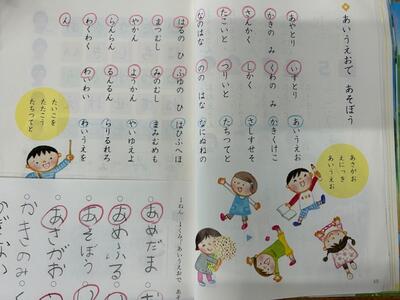 あいうえおで あそぼう
あやとり いすとり あいうえお
かきの み くわの み かきくけこ
さんかく しかく さしすせそ
たこいと つりいと たちつてと
なのはな ののはな なにぬねの
はるの ひ ふゆの ひ はひふへほ
まつむし みのむし まみむめも
やかん ようかん やいゆえよ
らんらん るんるん らりるれろ
わくわく わいわい わいうえを
ん
あさがお
えにっき
あいうえお
たいこを
たたこう
たちつてと
あいうえおで
あめだま
あめ ふる
あそぼう
あさがお
かきのみ